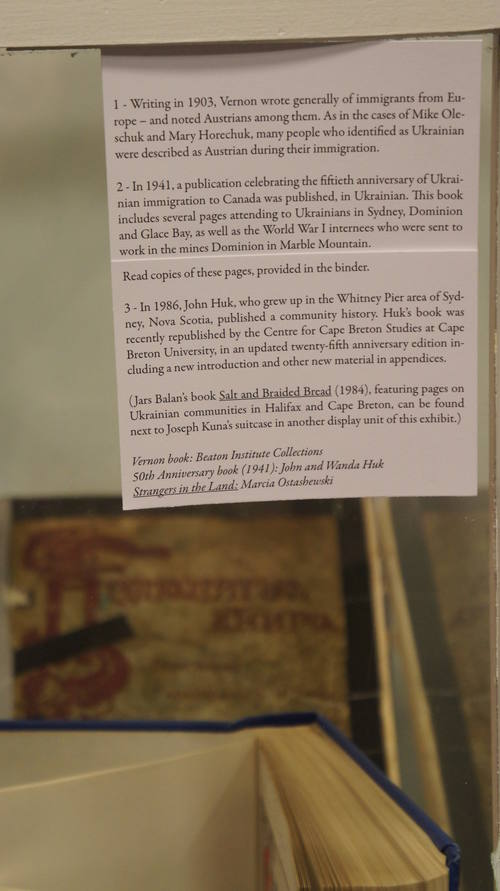 1 - Writing in 1903, Vernon wrote generally of immigrants from Eu-
rope – and noted Austrians among them. As in the cases of Mike Ole-
schuk and Mary Horechuk, many people who identified as Ukrainian
were described as Austrian during their immigration.
2 - In 1941, a publication celebrating the fiftieth anniversary of Ukrai-
nian immigration to Canada was published, in Ukrainian. This book
includes several pages attending to Ukrainians in Sydney, Dominion
and Glace Bay, as well as the World War I internees who were sent to
work in the mines Dominion in Marble Mountain.
Read copies of these pages, provided in the binder.
3 - In 1986, John Huk, who grew up in the Whitney Pier area of Syd-
ney, Nova Scotia, published a community history. Huk's book was
recently republished by the Centre for Cape Breton Studies at Cape
Breton University, in an updated twenty-fifth anniversary edition in-
cluding a new introduction and other new material in appendices.
(Jars Balan's book Salt and Braided Bread (1984), featuring pages on
Ukrainian communities in Halifax and Cape Breton, can be found
next to Joseph Kuna's suitcase in another display unit of this exhibit.)
Vernon book: Beaton Institute Collections
50th Anniversary book (1941): John and Wanda Huk
Strangers in the Land: Marcia Ostashewski